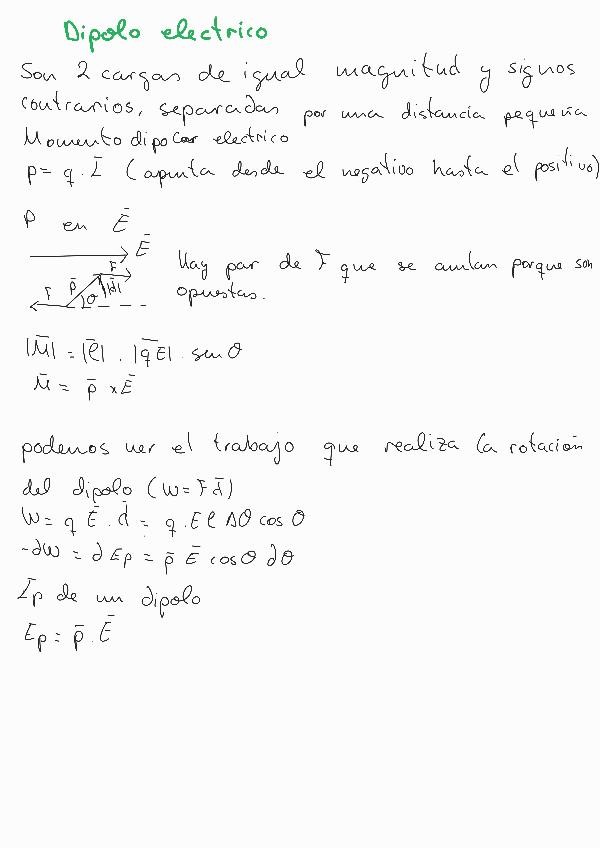 Dipolo electrico
Son 2 cargas de igual magnitud y signos
contrarios, separadas por una distancia pequeña
Momento dipolar electrico
p = q . L̄ (apunta desde el negativo hasta el positivo)
P en Ē
Ē
F
F p̄ θ |d̄|
Hay par de F que se anulan porque son
opuestas.
|M̄| = |ℓ̄| . |q̄Ē| . sen θ
M̄ = p̄ × Ē
podemos ver el trabajo que realiza la rotación
del dipolo (W = F d̄)
W = q Ē . d̄ = q . E ℓ Δθ cos θ
-∂W = ∂Ep = p̄ Ē cos θ ∂θ
Ep de un dipolo
Ep = p̄ . Ē